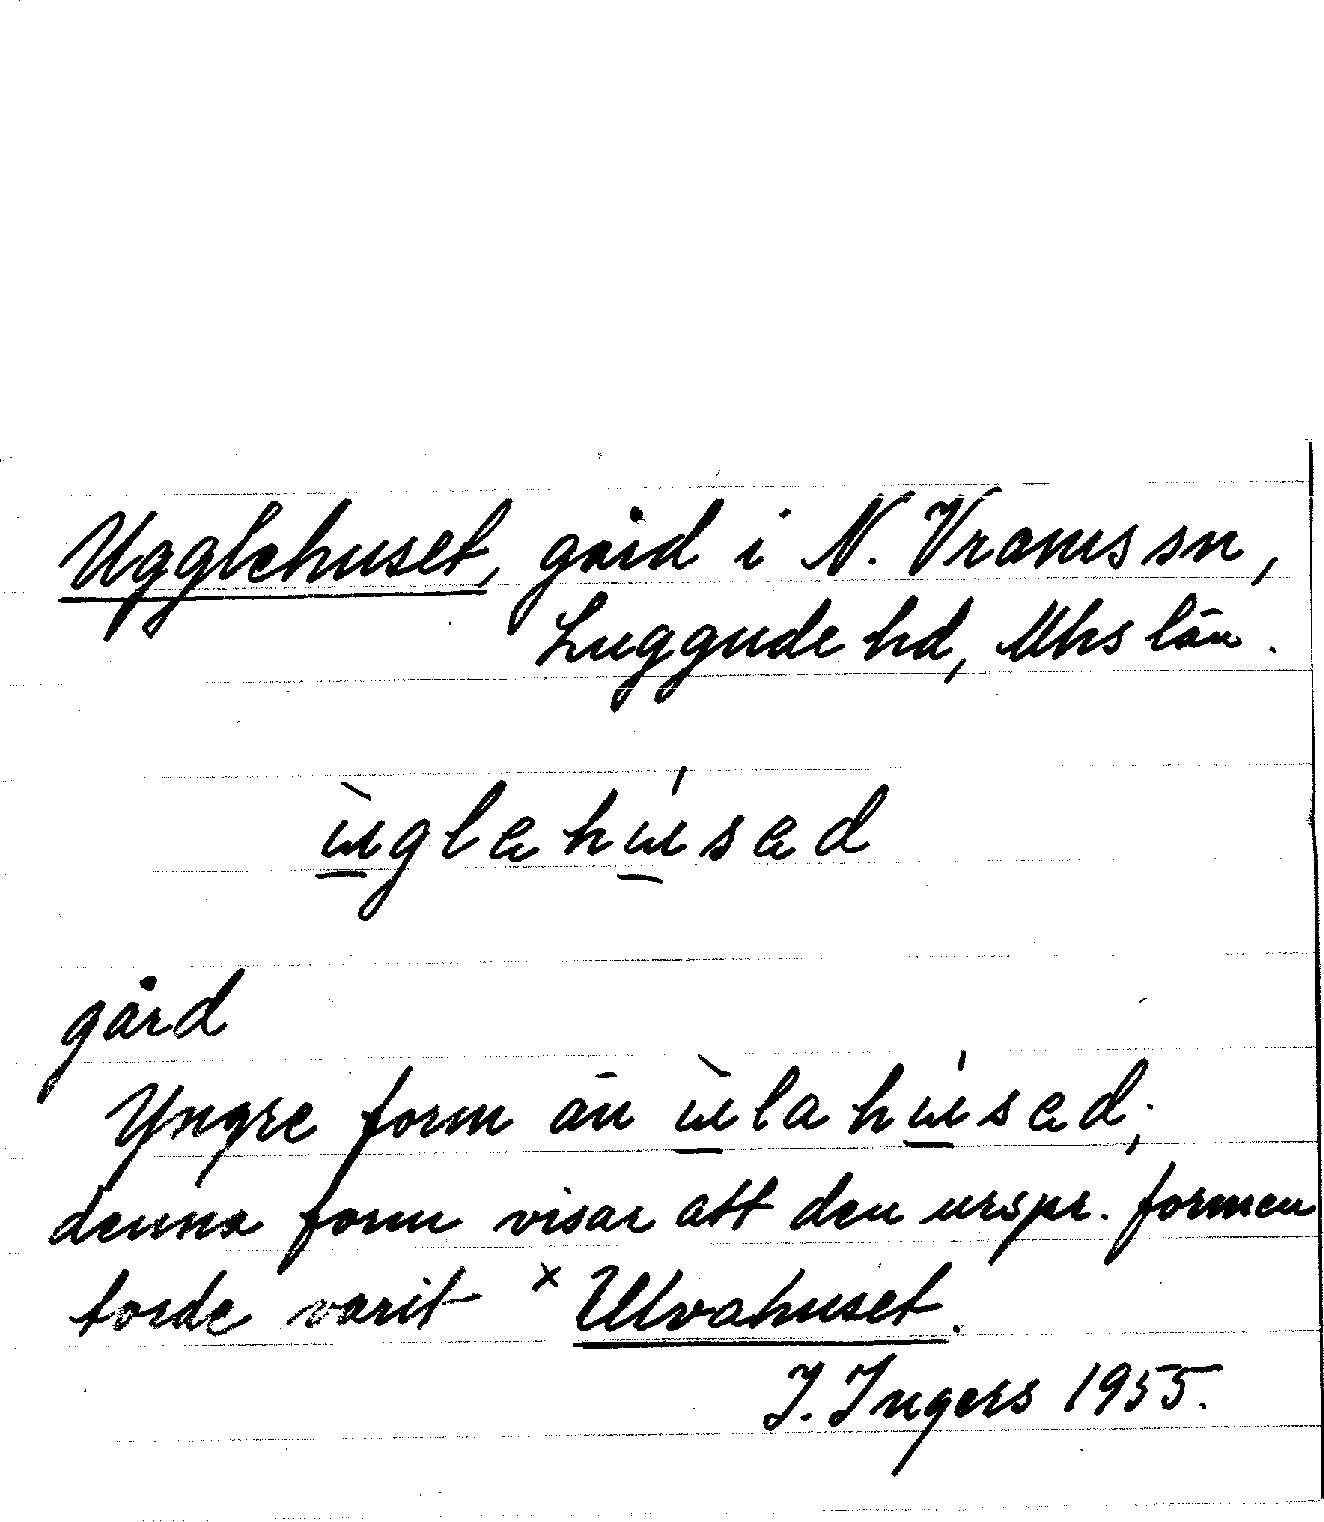 Ugglehuset, gård i N. Vrams sn,
Luggude hd, Mhs län.
ùglehúsed
gård
Yngre form än ùlahúsed;
denna form visar att den urspr. formen
torde varit ˣUlvahuset.
I. Ingers 1955.